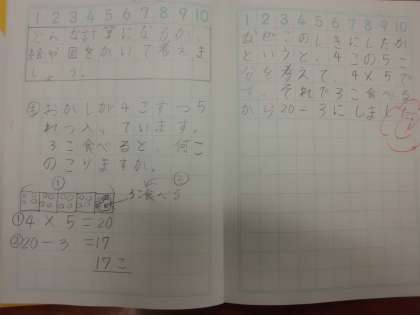 1 2 3 4 5 6 7 8 9 10
どんな計算になるか、
絵や図をかいて考えま
しょう。
おかしが4こずつ5
れつ入っています。
3こ食べると、何こ
のこりますか。
① ②
3こ食べる
①4×5=20
②20-3=17
17こ
1 2 3 4 5 6 7 8 9 10
なぜこのしきにしたか
というと、4この5こ
分を考えて、4×5で
す。それで3こ食べる
から20-3にしました。